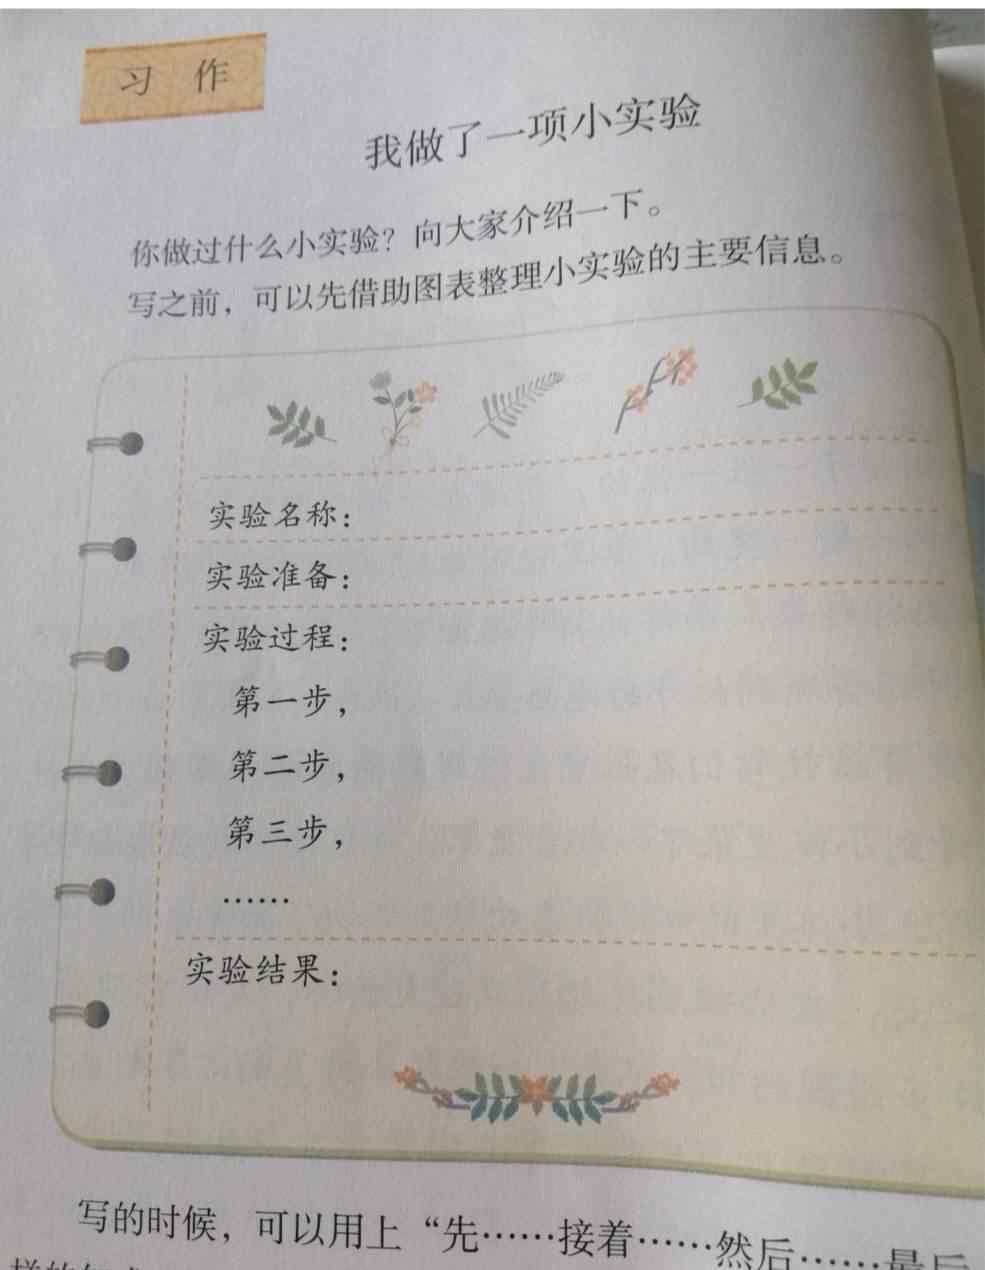 习 作
我做了一项小实验
你做过什么小实验？向大家介绍一下。
写之前，可以先借助图表整理小实验的主要信息。
实验名称：
实验准备：
实验过程：
第一步，
第二步，
第三步，
……
实验结果：
写的时候，可以用上“先……接着……然后……最后